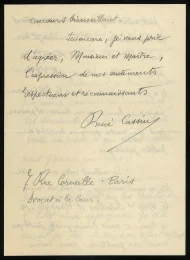 concours bienveillant.
Sincère, je vous prie
d'agréer, Monsieur et Maître,
l'expression de mes sentiments
respectueux et reconnaissants
René Cassin
7 Rue Corneille - Paris
Avocat à la Cour.